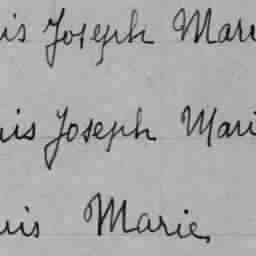 is Joseph Mari
uis Joseph Mari
uis Marie